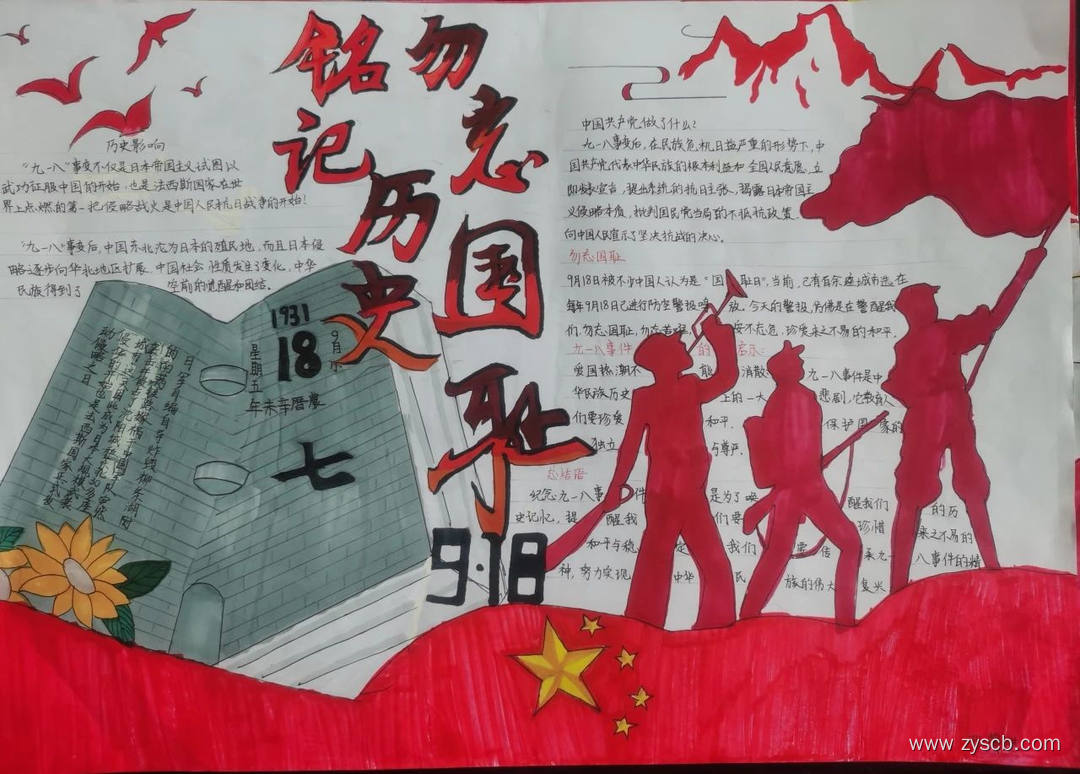 铭记历史
勿忘国耻
历史影响
“九一八”事变不仅是日本帝国主义试图以
武功征服中国的开始,也是法西斯国家在世
界上点燃的第一把侵略战火是中国人民抗日战争的开始!
“九一八”事变后,中国东北沦为日本的殖民地,而且日本侵
略逐步向华北地区扩展,中国社会性质发生了变化,中华
民族得到了空前的觉醒和团结。
1931
9月小
18
星期五
年未辛曆農
七
9·18
中国共产党做了什么?
九一八事变后,在民族危机日益严重的形势下,中
国共产党代表中华民族的根本利益和全国人民意愿,立
即发表宣言,提出系统的抗日主张,揭露日本帝国主
义侵略本质,批判国民党当局的不抵抗政策
向中国人民宣示了坚决抗战的决心。
勿忘国耻
9月18日被不少中国人认为是“国耻日”,当前,已有百余座城市选在
每年9月18日已进行防空警报鸣放,今天的警报,仿佛是在警醒我
们,勿忘国耻,勿忘苦难 安不忘危,珍爱来之不易的和平,
九一八事件的启示:
爱国热潮不 散 消散 九一八事件是中
华民族历史上的一大悲剧,它教育人
们要珍爱和平,保护国家的
独立与尊严.
总结语
纪念九一八事件是为了唤醒我们的历
史记忆,提醒我们要珍惜来之不易的
和平与稳定 我们要传承九一八事件的精
神,努力实现中华民族的伟大复兴
www.zyscb.com